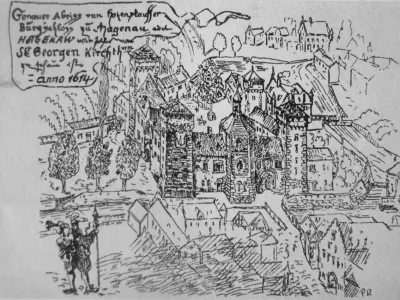 Genauer Abriss von Hohenstauffer
Burgschloss zu Hagenau oder
HAGENAW
St. Georgen Kirchthurm
zu
= anno 1614
P.D.